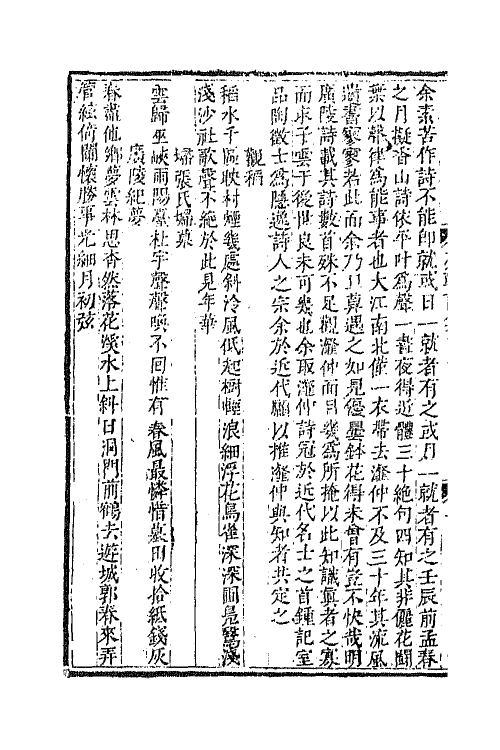 余素苦作詩不能即就或日一就者有之或月一就者有之壬辰前孟春
之月擬香山詩依平叶為聲一晝夜得近體三十絶句四知其非儷花鬭
葉以聲律為能事者也大江南北僅一衣帶去瀠仲不及三十年其流風
遺書寥寥若此而余乃旦莫遇之如見優曇鉢花得未曾有豈不快哉明
廣陵詩載其詩數首殊不足觀瀠仲面目幾為所掩以此知識眞者之寡
而求子雲于後世良未可幾也余取瀠仲詩冠於近代名士之首鍾記室
品陶徵士為隱逸詩人之宗余於近代願以推瀠仲與知者共定之
觀稻
稻水千區映村煙幾處斜冷風低起樹輕浪細浮花鳥雀深深圃鳧鷖淺
淺沙社歌聲不絶於此見年華
婦張氏婦墓
雲歸巫峽雨陽臺杜宇聲聲喚不回惟有春風最憐惜墓田收拾紙錢灰
廣陵紀夢
春盡他鄉夢雲林思杳然落花溪水上斜日洞門前鶴去遊城郭春來弄
管絃倚闌懷勝事光細月初弦